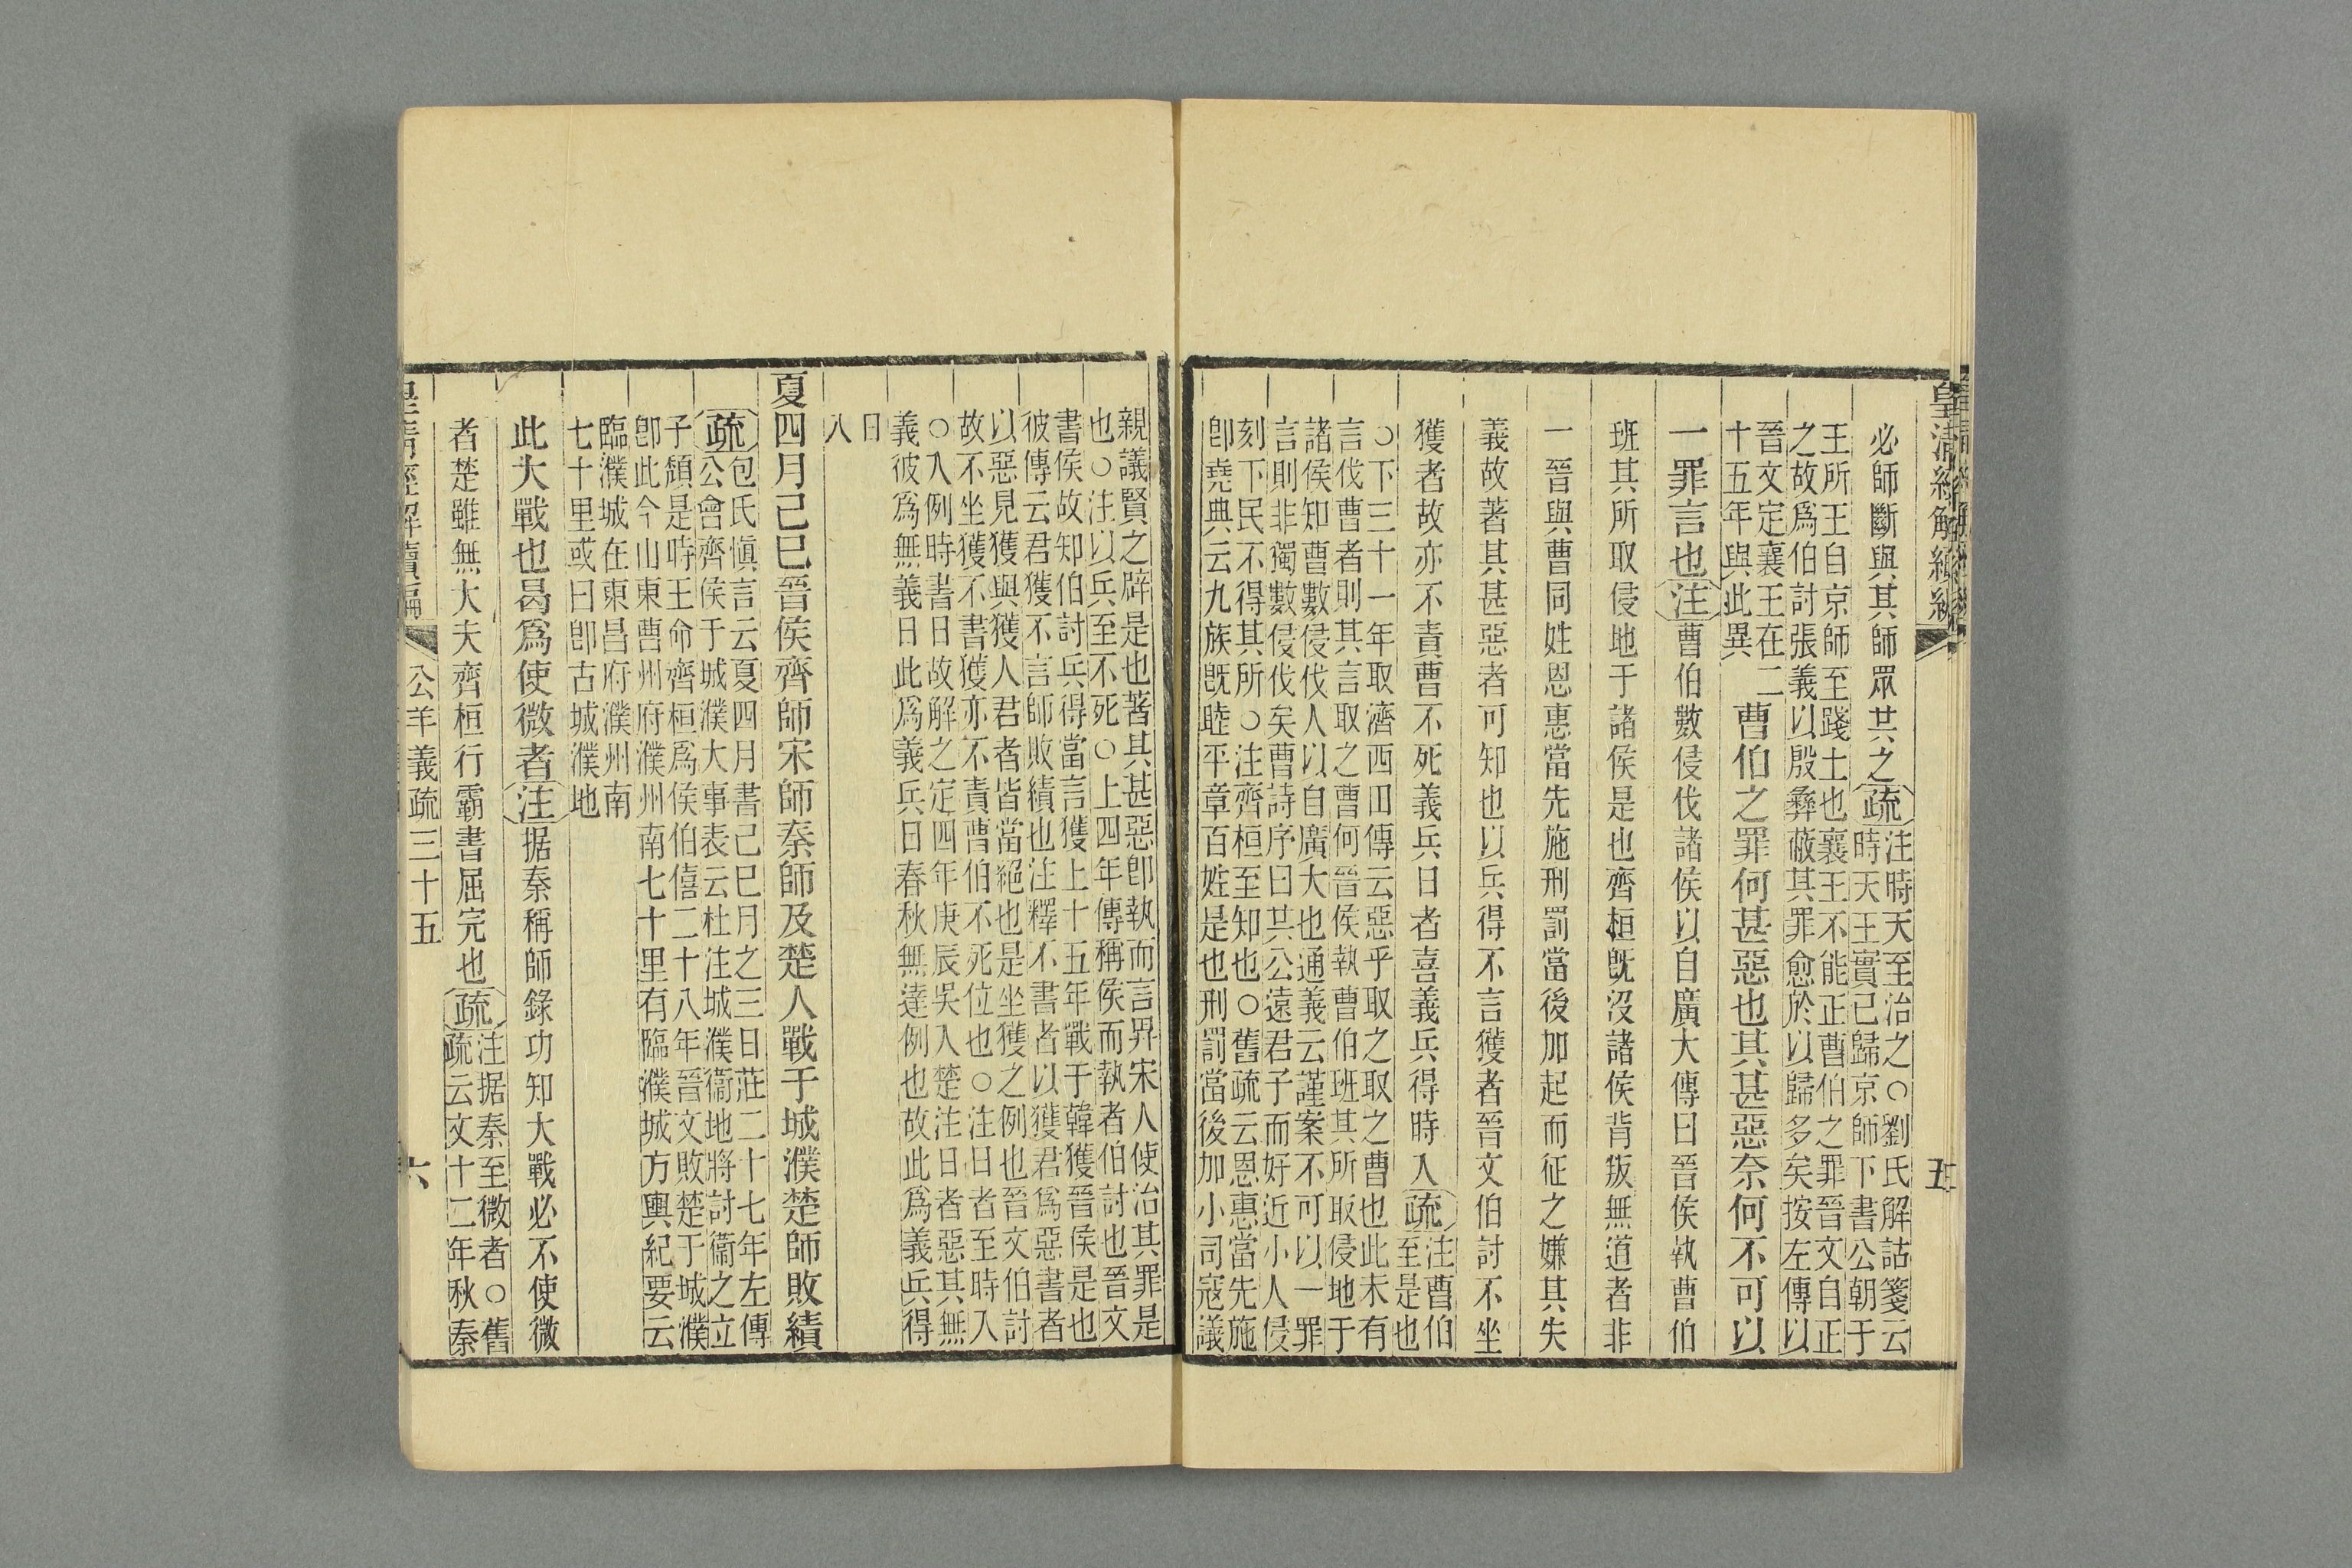 皇清經解續編
五
必師斷與其師眾共之疏注時天至治之○劉氏解詁箋云
時天王實已歸京師下書公朝于
王所王自京師至踐土也襄王不能正曹伯之罪晉文自正
之故爲伯討張義以殷彝蔽其罪愈於以歸多矣按左傳以
晉文定襄王在二
十五年與此異
曹伯之罪何甚惡也其甚惡奈何不可以
一罪言也注曹伯數侵伐諸侯以自廣大傳曰晉侯執曹伯
班其所取侵地于諸侯是也齊桓旣沒諸侯背叛無道者非
一晉與曹同姓恩惠當先施刑罰當後加起而征之嫌其失
義故著其甚惡者可知也以兵得不言獲者晉文伯討不坐
獲者故亦不責曹不死義兵日者喜義兵得時入疏注曹伯
至是也
○下三十一年取濟西田傳云惡乎取之取之曹也此未有
言伐曹者則其言取之曹何晉侯執曹伯班其所取侵地于
諸侯知曹數侵伐人以自廣大也通義云謹案不可以一罪
言則非獨數侵伐矣曹詩序曰共公遠君子而好近小人侵
刻下民不得其所○注齊桓至知也○舊疏云恩惠當先施
卽堯典云九族旣睦平章百姓是也刑罰當後加小司寇議
親議賢之辟是也著其甚惡卽執而言畀宋人使治其罪是
也○注以兵至不死○上四年傳稱侯而執者伯討也晉文
書侯故知伯討兵得當言獲上十五年戰于韓獲晉侯是也
彼傳云君獲不言師敗績也注釋不書者以獲君爲惡書者
以惡見獲與獲人君者皆當絕也是坐獲之例也晉文伯討
故不坐獲不書獲亦不責曹伯不死位也○注日者至時入
○入例時書日故解之定四年庚辰吳入楚注日者惡其無
義彼爲無義日此爲義兵日春秋無達例也故此爲義兵得
日
入
夏四月己巳晉侯齊師宋師秦師及楚人戰于城濮楚師敗績
疏包氏愼言云夏四月書己巳月之三日莊二十七年左傳
公會齊侯于城濮大事表云杜注城濮衞地將討衞之立
子頹是時王命齊桓爲侯伯僖二十八年晉文敗楚于城濮
卽此今山東曹州府濮州南七十里有臨濮城方輿紀要云
臨濮城在東昌府濮州南
七十里或曰卽古城濮地
此大戰也曷爲使微者注据秦稱師錄功知大戰必不使微
者楚雖無大夫齊桓行霸書屈完也疏注据秦至微者○舊
疏云文十二年秋秦
皇清經解續編
公羊義疏三十五
六